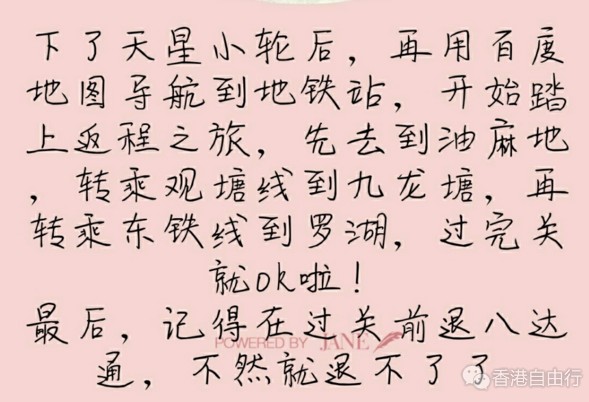 下了天星小轮后，再用百度
地图导航到地铁站，开始踏
上返程之旅，先去到油麻地
，转乘观塘线到九龙塘，再
转乘东铁线到罗湖，过完关
就ok啦！
最后，记得在过关前退八达
POWERED BY JANE
通，不然就退不了了
香港自由行